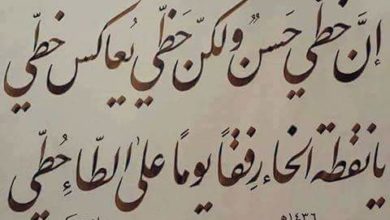 إنَّ خطِّي حَسَنٌ ولكنّ حَظِّي يُعاكس خطِّي
يا نقطة الخاء رِفقاً يوماً على الطّاءِ حُطِّي
١٤٣٦هـ